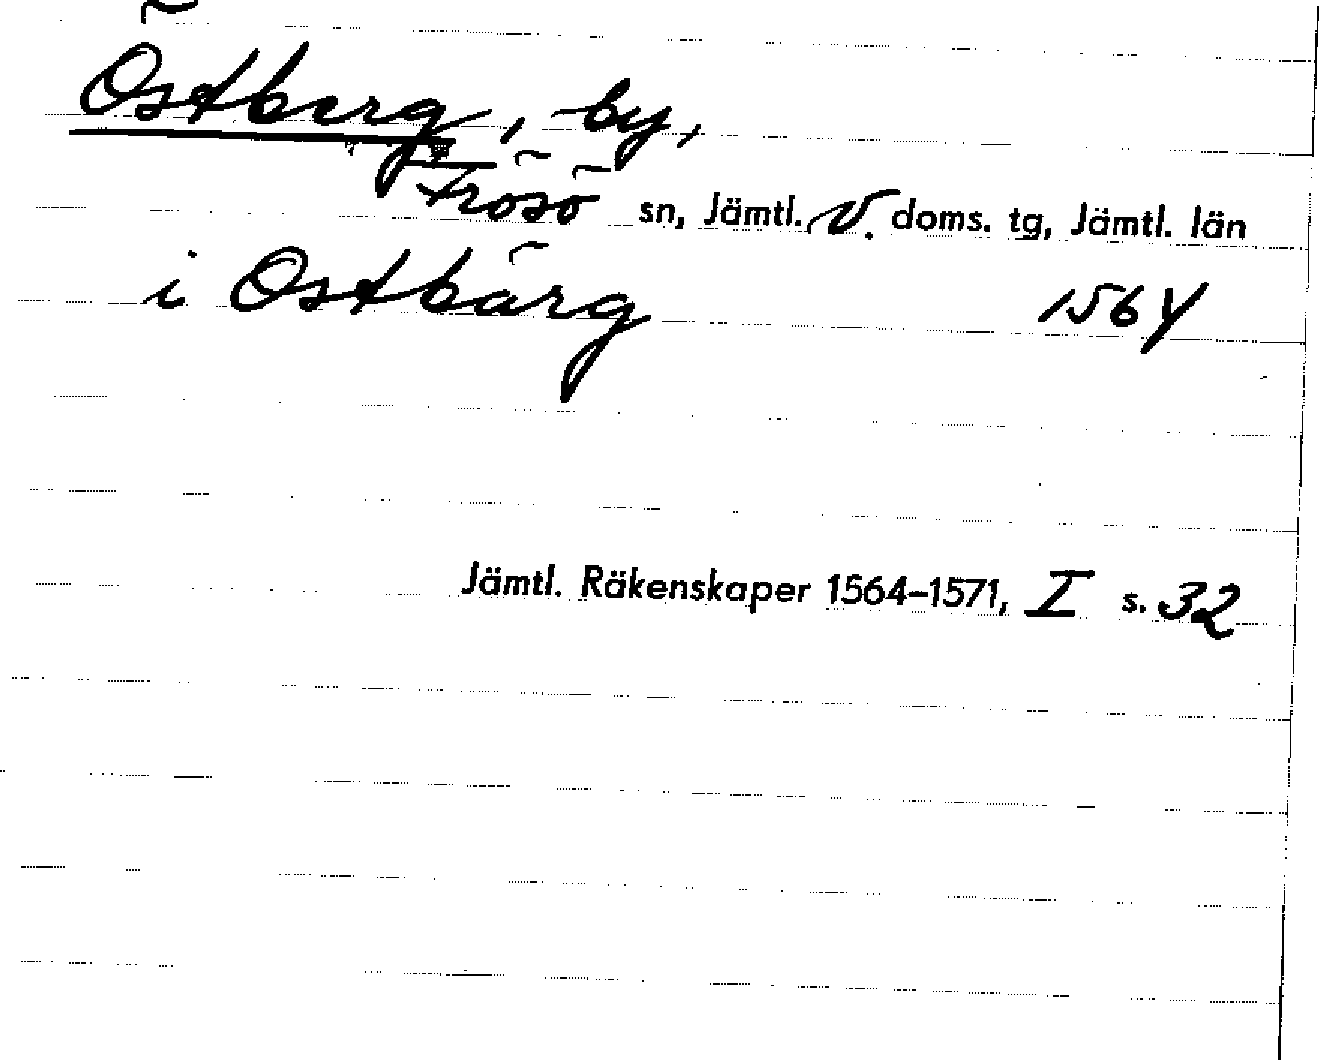 Östberg, by,
Frösö sn, Jämtl. V. doms. tg, Jämtl. län
i Ostbärg 1564
Jämtl. Räkenskaper 1564–1571, I s. 32